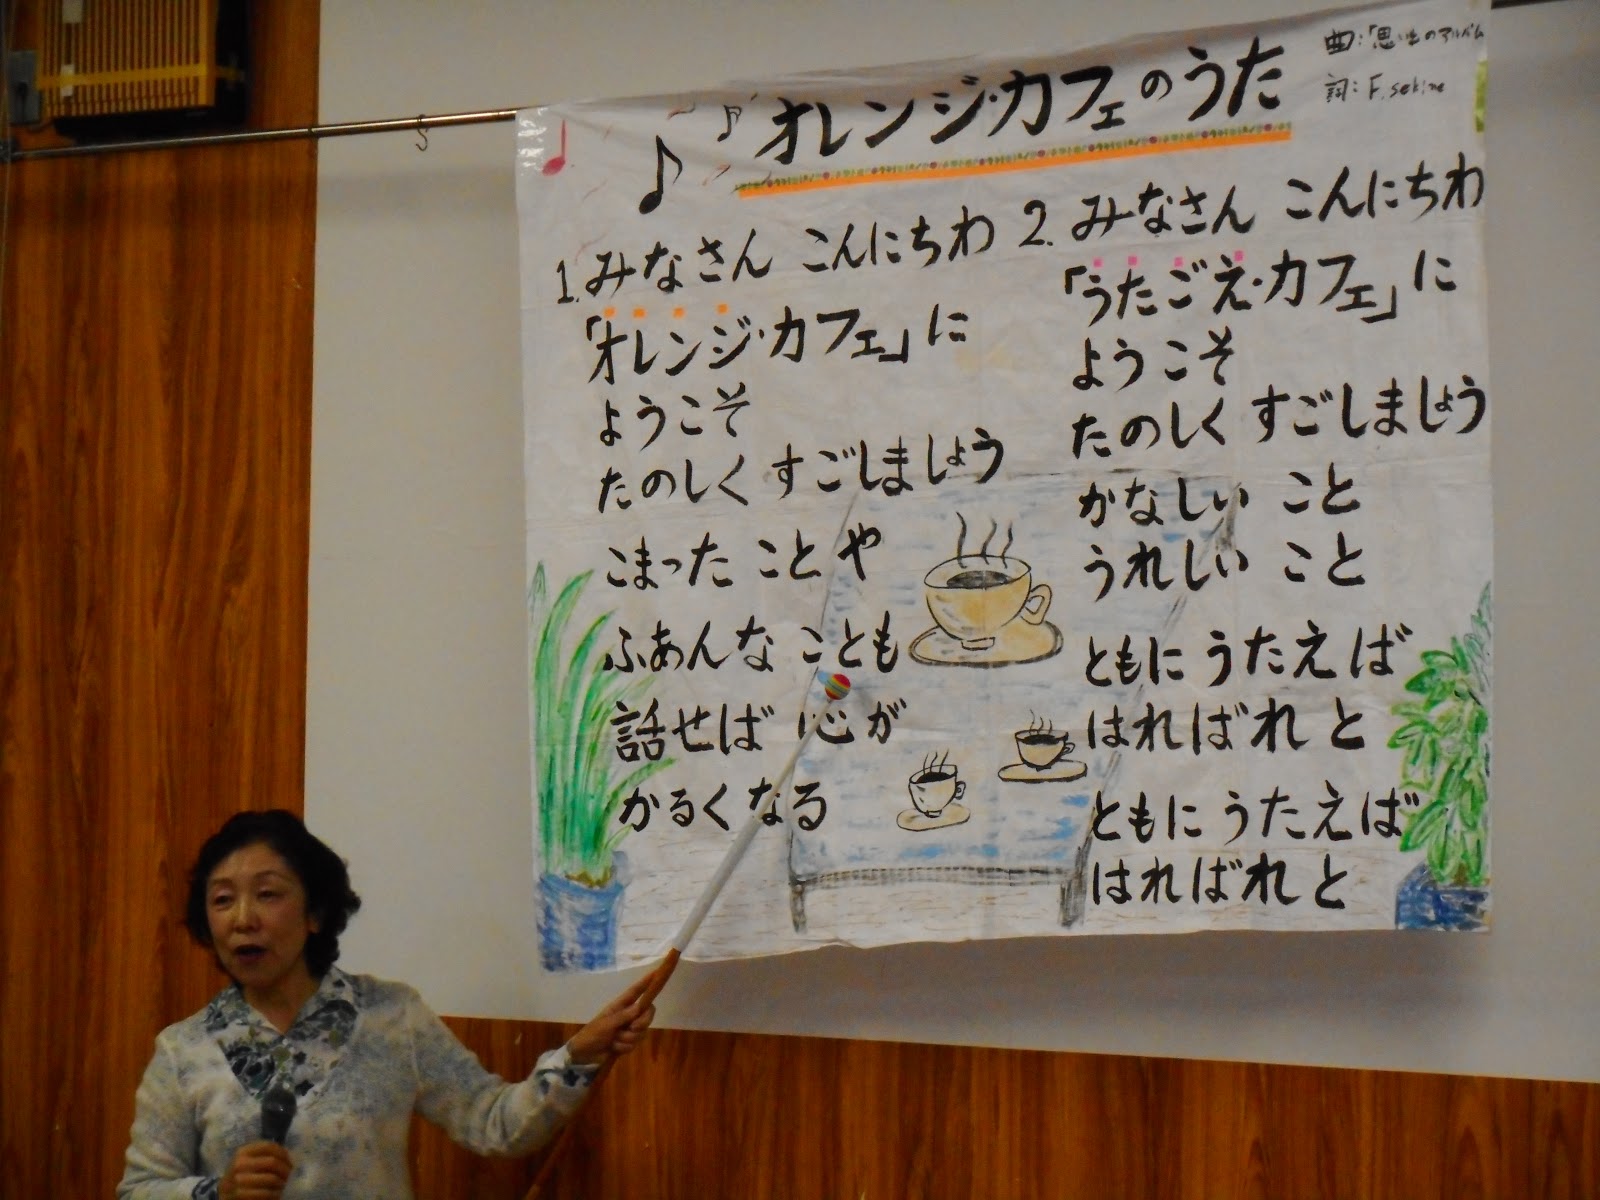 オレンジ・カフェのうた
曲:「思い出のアルバム
詞: F. sekine
1. みなさん こんにちわ
「オレンジ・カフェ」に
ようこそ
たのしく すごしましょう
こまった ことや
ふあんな ことも
話せば 心が
かるく なる
2. みなさん こんにちわ
「うたごえ・カフェ」に
ようこそ
たのしく すごしましょう
かなしい こと
うれしい こと
ともに うたえば
はればれ と
ともに うたえば
はればれ と